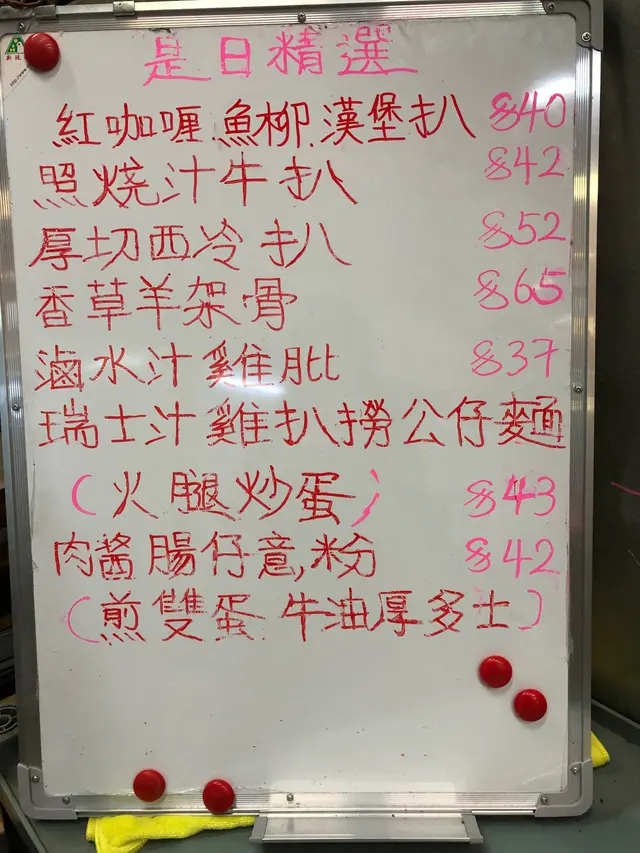 是日精選
紅咖喱魚柳.漢堡扒 $40
照烧汁牛扒 $42
厚切西冷扒 $52
香草羊架骨 $65
滷水汁雞肶 $37
瑞士汁雞扒撈公仔麵
(火腿炒蛋) $43
肉醬腸仔意,粉 $42
(煎雙蛋 牛油厚多士)